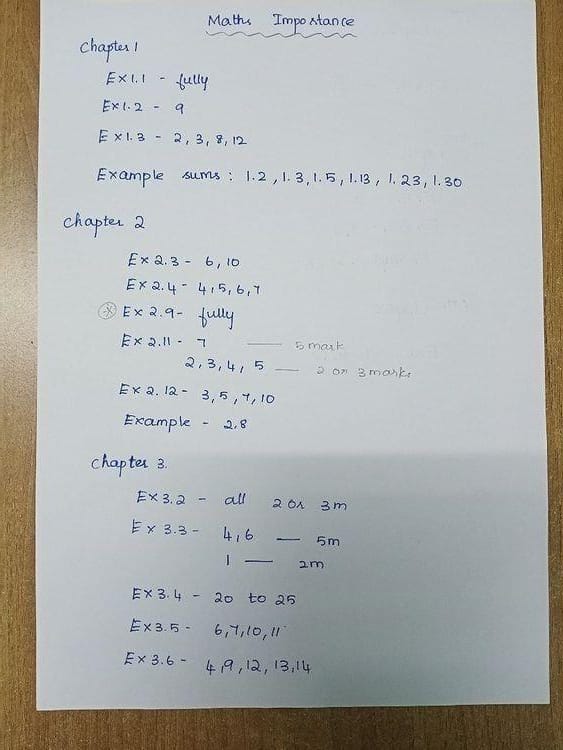 Maths Importance
Chapter 1
Ex 1.1 - fully
Ex 1.2 - 9
Ex 1.3 - 2, 3, 8, 12
Example sums : 1.2, 1.3, 1.5, 1.13, 1.23, 1.30
Chapter 2
Ex 2.3 - 6, 10
Ex 2.4 - 4, 5, 6, 7
Ex 2.9 - fully
Ex 2.11 - 7 — 5 mark
2, 3, 4, 5 — 2 or 3 marks
Ex 2.12 - 3, 5, 7, 10
Example - 2.8
Chapter 3.
Ex 3.2 - all 2 or 3m
Ex 3.3 - 4, 6 — 5m
1 — 2m
Ex 3.4 - 20 to 25
Ex 3.5 - 6, 7, 10, 11
Ex 3.6 - 4, 9, 12, 13, 14